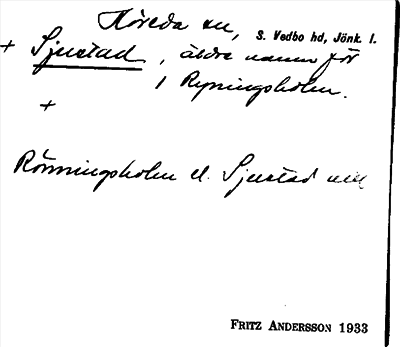 Höreda sn, S. Vedbo hd, Jönk. l.
+ Sjustad, äldre namn för
Ryningsholm.
+
Rönningsholm el. Sjustad
FRITZ ANDERSSON 1933